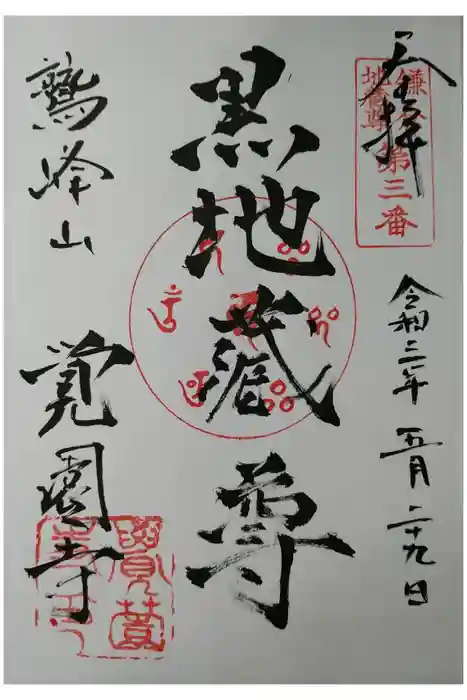 奉拝
鎌倉
地蔵尊
第三番
令和三年 五月 二十九日
黒地蔵尊
鷲峰山
覚園寺